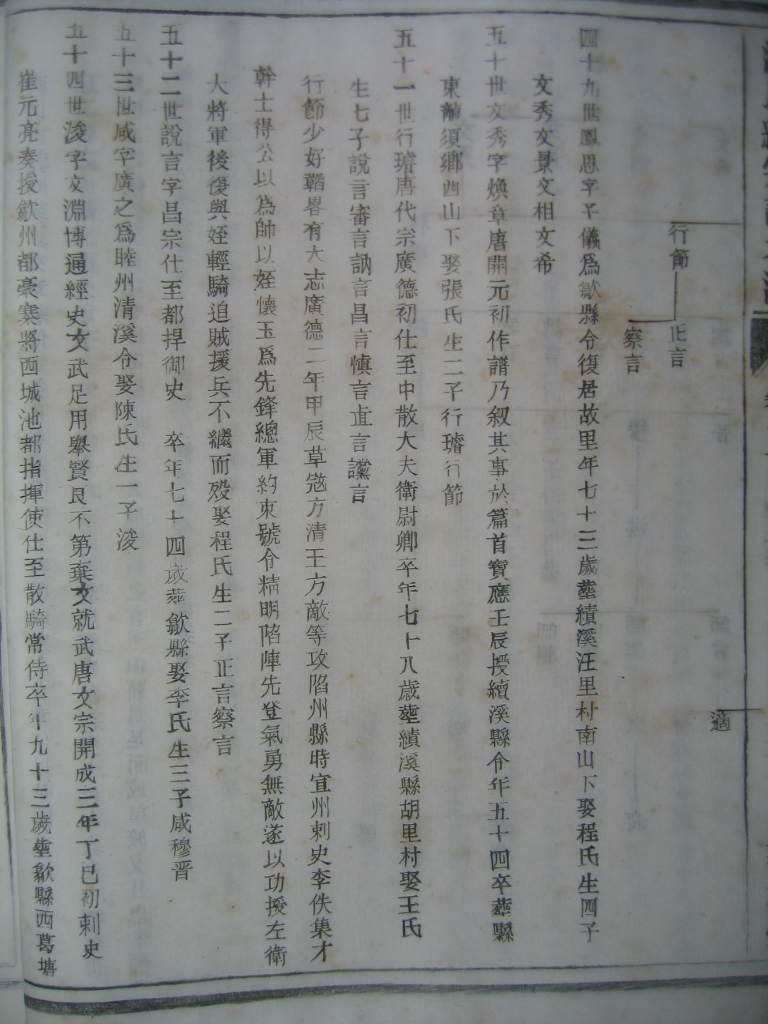 適
行節
正言
察言
四十九世鳳思字子儀為歙縣令復居故里年七十三歲塟績溪汪里村南山下娶程氏生四子
文秀文景文相文希
五十世文秀字煥章唐開元初作譜乃叙其事於篇首寳應壬辰授績溪縣令年五十四卒塟縣
東敵須鄉西山下娶張氏生二子行璿行節
五十一世行璿唐代宗廣德初仕至中散大夫衛尉卿卒年七十八歲塟績溪縣胡里村娶王氏
生七子說言審言訥言昌言慎言直言讜言
行節少好韜畧有大志廣德二年甲辰草宼方清王方敵等攻陷州縣時宣州刺史李佚集才
幹士得公以為帥以姪懷玉為先鋒總軍約束號令精明陷陣先登氣勇無敵遂以功授左衛
大將軍後復與姪輕騎追賊援兵不繼而歿娶程氏生二子正言察言
五十二世說言字昌宗仕至都捍御史 卒年七十四歲塟歙縣娶李氏生三子咸穆晋
五十三世咸字廣之為睦州清溪令娶陳氏生一子浚
五十四世浚字文淵博通經史文武足用舉賢良不第棄文就武唐文宗開成二年丁巳初刺史
崔元亮奏授歙州都豪寨將西城池都指揮使仕至散騎常侍卒年九十三歲塟歙縣西葛塘